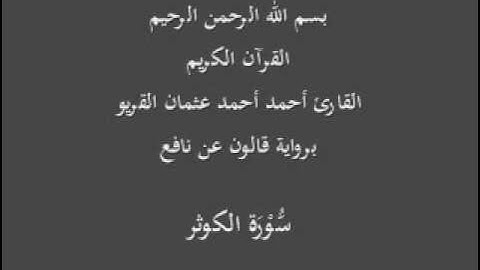 بسم الله الرحمن الرحيم
القرآن الكريم
القارئ أحمد أحمد عثمان القريو
برواية قالون عن نافع
سُّوْرَة الكوثر